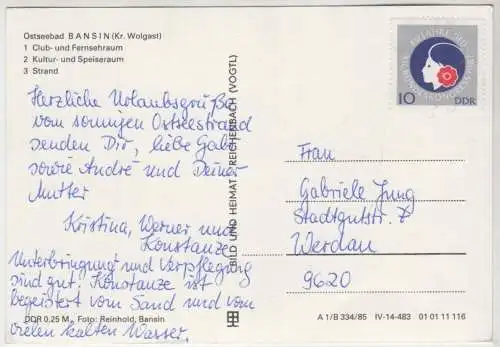 Ostseebad BANSIN (Kr. Wolgast)
1 Club- und Fernsehraum
2 Kultur- und Speiseraum
3 Strand
Herzliche Urlaubsgrüße
vom sonnigen Ostseestrand
senden Dir, liebe Gabi
sowie André und Deiner
Mutter
Kristina, Werner und
Konstanze
Unterbringung und Verpflegung
sind gut. Konstanze ist
begeistert vom Sand und vom
vielen kalten Wasser.
DDR 0,25 M, Foto: Reinhold, Bansin
BILD UND HEIMAT REICHENBACH (VOGTL)
10 DDR
Frau
Gabriele Jung
Stadtgutstr. 7
Werdau
9620
A 1/B 334/85 IV-14-483 01 01 11 116